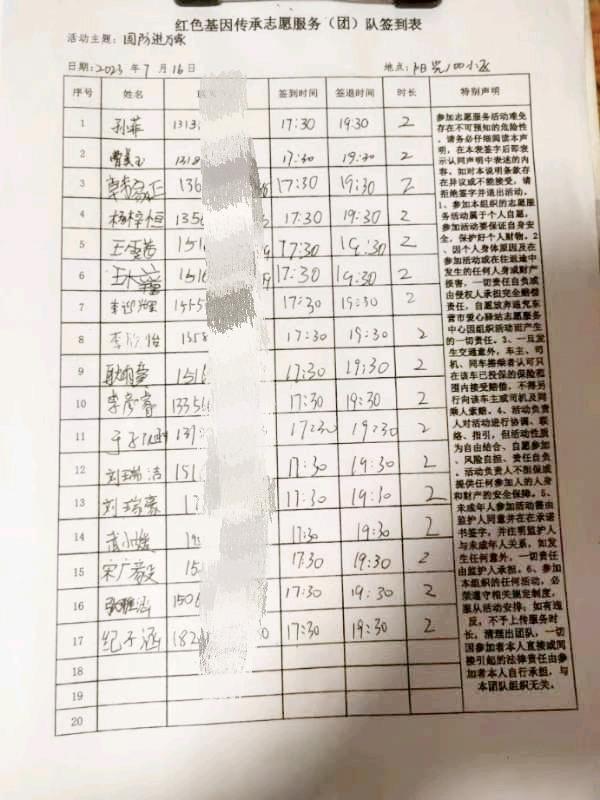 红色基因传承志愿服务（团）队签到表
活动主题：国防进万家
日期：2023 年 7 月 16日 地点：阳光100小区
序号 姓名 签到时间 签退时间 时长 特别声明
1 孙菲 1313 17:30 19:30 2
2 1318 17:30 19:30 2
3 136 17:30 19:30 2
4 杨梓恒 1356 17:30 19:30 2
5 王雪茜 1516 17:30 19:30 2
6 1516 17:30 19:30 2
7 17:30 19:30 2
8 李欣怡 1358 17:30 19:30 2
9 1516 17:30 19:30 2
10 李彦睿 133 17:30 19:30 2
11 17:30 19:30 2
12 刘瑞洁 151 17:30 19:30 2
13 刘瑞豪 17:30 19:30 2
14 武小媛 17:30 19:30 2
15 宋广毅 15 17:30 19:30 2
16 1506 17:30 19:30 2
17 纪子涵 182 17:30 19:30 2
18
19
20
参加志愿服务活动难免
存在不可预知的危险性
，请务必仔细阅读本声
明，在本表签字后即表
示认同声明中表述的内
容。如对本说明条款存
在异议或不能接受，请
拒绝签字并退出活动。
1、参加本组织的志愿服
务活动属于个人自愿，
参加活动要保证自身安
全，保护好个人财物。2
、因个人身体原因及在
参加活动或在往返途中
发生的任何人身或财产
损害，一切责任自负或
由侵权人承担完全赔偿
责任，自愿放弃追究东
营市爱心驿站志愿服务
中心因组织活动而产生
的一切责任。3、一旦发
生交通意外，车主、司
机、同车搭乘者认可只
在该车已投保的保险范
围内接受赔偿，不得另
行向该车主或司机及同
乘人索赔。4、活动负责
人对活动进行协调、联
络、指引，但活动性质
为自由结合、自愿参加
、风险自担、责任自负
。活动负责人不担保或
提供任何参加人的人身
和财产的安全保障。5、
未成年人参加活动需由
监护人同意并在在承诺
书签字，并注明监护人
与未成年人关系，如发
生任何意外，一切责任
由监护人承担。6、参加
本组织的任何活动，必
须遵守相关规定制度，
服从活动安排，如有违
反，不予上传服务时
长，清理出团队，一切
因参加者本人直接或间
接引起的法律责任由参
加者本人自行承担，与
本团队组织无关。